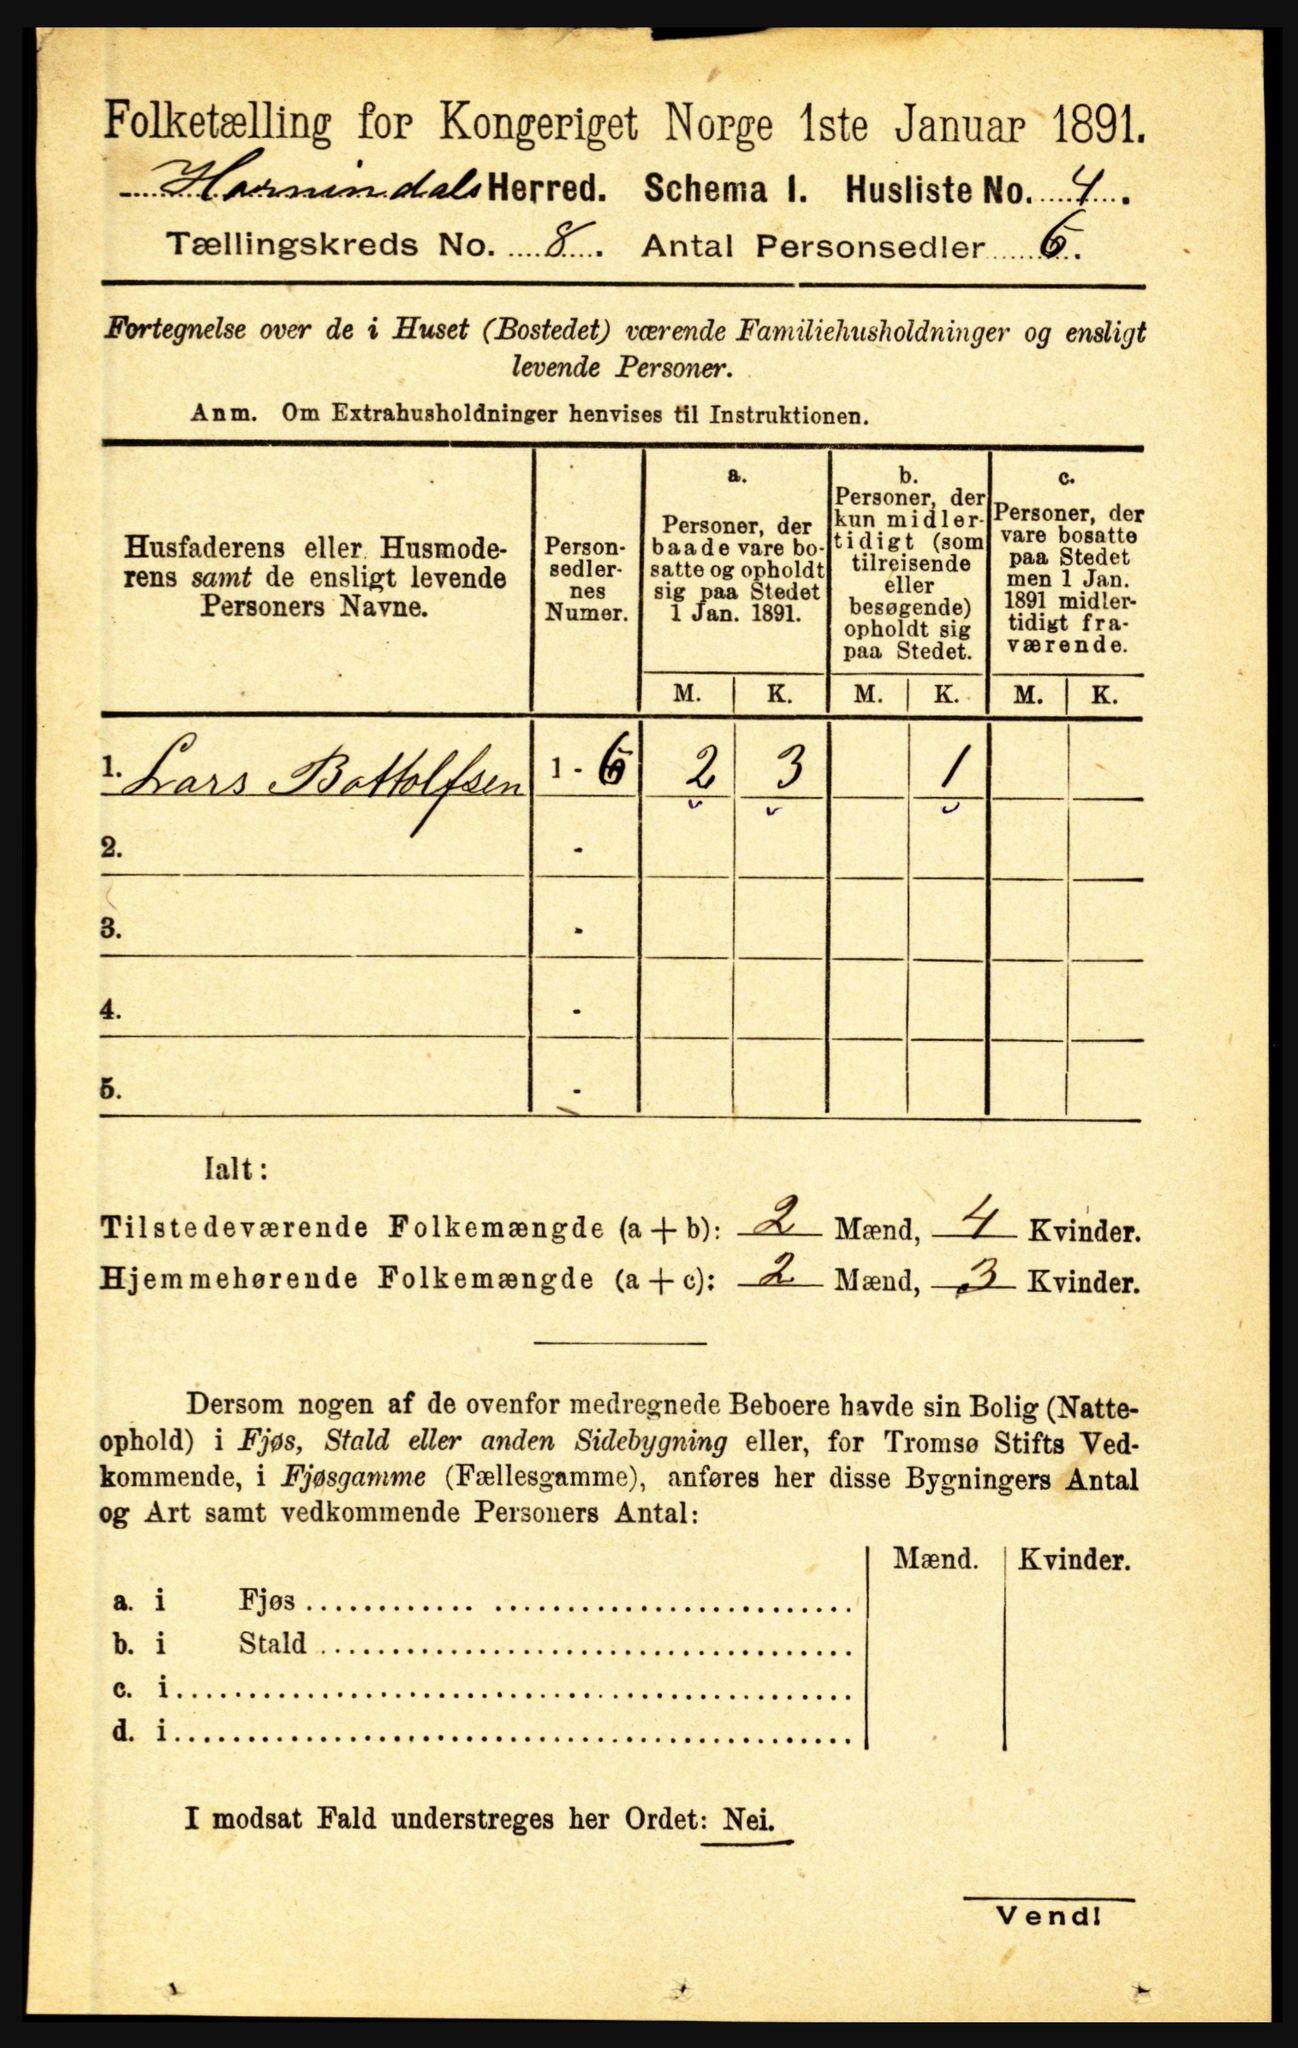 Folketælling for Kongeriget Norge 1ste Januar 1891.
Hornindals Herred. Schema I. Husliste No. 4.
Tællingskreds No. 8. Antal Personsedler 6.
Fortegnelse over de i Huset (Bostedet) værende Familiehusholdninger og ensligt
levende Personer.
Anm. Om Extrahusholdninger henvises til Instruktionen.
Husfaderens eller Husmode-
rens samt de ensligt levende
Personers Navne.
Person-
sedler-
nes
Numer.
a.
Personer, der
baade vare bo-
satte og opholdt
sig paa Stedet
1 Jan. 1891.
b.
Personer, der
kun midler-
tidigt (som
tilreisende
eller
besøgende)
opholdt sig
paa Stedet.
c.
Personer, der
vare bosatte
paa Stedet
men 1 Jan.
1891 midler-
tidigt fra-
værende.
M. K. M. K. M. K.
1. Lars Bottolfsen 1 - 6 2 3 1
2. -
3. -
4. -
5. -
Ialt:
Tilstedeværende Folkemængde (a + b): 2 Mænd, 4 Kvinder.
Hjemmehørende Folkemængde (a + c): 2 Mænd, 3 Kvinder.
Dersom nogen af de ovenfor medregnede Beboere havde sin Bolig (Natte-
ophold) i Fjøs, Stald eller anden Sidebygning eller, for Tromsø Stifts Ved-
kommende, i Fjøsgamme (Fællesgamme), anføres her disse Bygningers Antal
og Art samt vedkommende Personers Antal:
Mænd. Kvinder.
a. i Fjøs
b. i Stald
c. i
d. i
I modsat Fald understreges her Ordet: Nei.
Vend!